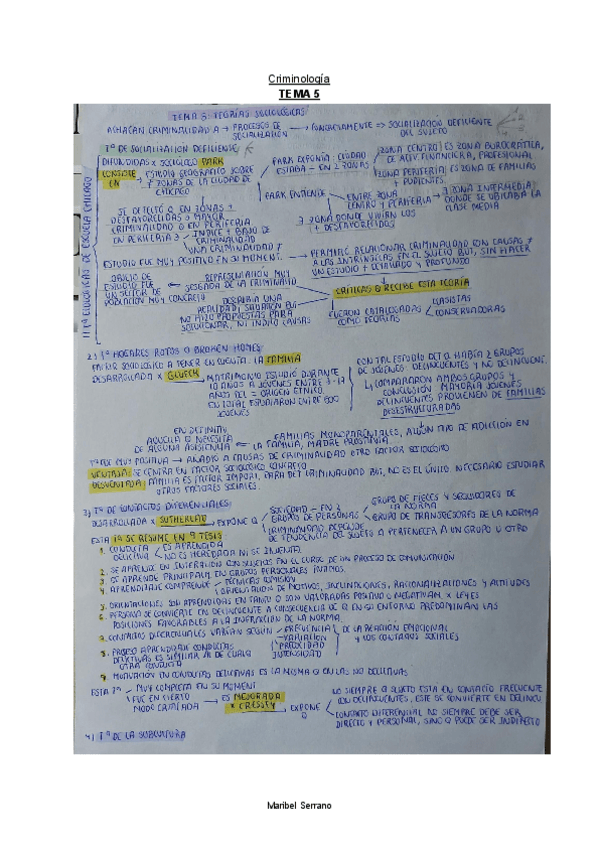 Criminología
TEMA 5
TEMA 5: TEORÍAS SOCIOLÓGICAS
ACHACAN CRIMINALIDAD A → PROCESOS DE SOCIALIZACIÓN → CONCRETAMENTE => SOCIALIZACIÓN DEFICIENTE DEL SUJETO
1) Tª ECOLÓGICAS DE ESCUELA CHICAGO
Tª DE SOCIALIZACIÓN DEFICIENTE
DIFUNDIDAS X SOCIÓLOGO PARK
CONSISTE EN
ESTUDIO GEOGRÁFICO SOBRE
≠ ZONAS DE LA CIUDAD DE CHICAGO
PARK EXPONÍA: CIUDAD
ESTABA - EN 2 ZONAS
ZONA CENTRO | ES ZONA BUROCRÁTICA,
DE ACTIV. FINANCIERA, PROFESIONAL
ZONA PERIFERIA: ES ZONA DE FAMILIAS
+ PUDIENTES.
PARK ENTIENDE
ENTRE ZONA
CENTRO Y PERIFERIA
∃ ZONA INTERMEDIA:
DONDE SE UBICABA LA
CLASE MEDIA
∃ ZONA DONDE VIVÍAN LOS
+ DESFAVORECIDOS
SE DETECTÓ Q EN ZONAS +
DESFAVORECIDAS ∃ MAYOR
CRIMINALIDAD Q EN PERIFERIA
EN PERIFERIA ∃
ÍNDICE + BAJO DE
CRIMINALIDAD
UNA CRIMINALIDAD
ESTUDIO FUE MUY POSITIVO EN SU MOMENT.
PERMITIÓ RELACIONAR CRIMINALIDAD CON CAUSAS ≠
A LAS INTRÍNSECAS EN EL SUJETO BUT, SIN HACER
UN ESTUDIO + DETALLADO Y PROFUNDO
OBJETO DE
ESTUDIO FUE
UN SECTOR DE
POBLACIÓN MUY CONCRETO
REPRESENTACIÓN MUY
SESGADA DE LA CRIMINALID
DESCRIBÍA UNA
REALIDAD SOCIAL BUT
NO HIZO PROPUESTAS PARA
SOLUCIONAR, NI INDICÓ CAUSAS
CRÍTICAS Q RECIBE ESTA TEORÍA
FUERON CATALOGADAS
COMO TEORÍAS
CLASISTAS
CONSERVADORAS
2) Tª HOGARES ROTOS O BROKEN HOMES:
FACTOR SOCIOLÓGICO A TENER EN CUENTA: LA FAMILIA
DESARROLLADA X GLUECK
MATRIMONIO ESTUDIÓ DURANTE
10 AÑOS A JÓVENES ENTRE
AÑOS DEL = ORIGEN ÉTNICO
EN TOTAL ESTUDIARON ENTRE 500
JÓVENES
CON TAL ESTUDIO DET Q HABÍA 2 GRUPOS
DE JÓVENES: DELINCUENTES Y NO DELINCUENT.
COMPARARON AMBOS GRUPOS Y
CONCLUSIÓN MAYORÍA JÓVENES
DELINCUENTES PROVIENEN DE FAMILIAS
DESESTRUCTURADAS
EN DEFINITIV.
AQUELLA Q NECESITA
DE ALGUNA ASISTENCIA
FAMILIAS MONOPARENTALES, ALGÚN TIPO DE ADICCIÓN EN
LA FAMILIA, MADRE PROSTITUTA
Tª FUE MUY POSITIVA → AÑADIÓ A CAUSAS DE CRIMINALIDAD OTRO FACTOR SOCIOLÓGICO
VENTAJA: SE CENTRA EN FACTOR SOCIOLÓGICO CONCRETO
DESVENTAJA: FAMILIA ES FACTOR IMPORT. PARA DET CRIMINALIDAD BUT, NO ES EL ÚNICO, NECESARIO ESTUDIAR
OTROS FACTORES SOCIALES.
3) Tª DE CONTACTOS DIFERENCIALES:
DESARROLLADA X SUTHERLAD EXPONE Q
SOCIEDAD - EN 2
GRUPOS DE PERSONAS
GRUPO DE FIELES Y SEGUIDORES DE
LA NORMA
GRUPO DE TRANSGRESORES DE LA NORMA
CRIMINALIDAD DEPENDE
DE TENDENCIA DEL SUJETO A PERTENECER A UN GRUPO U OTRO
ESTA Tª SE RESUME EN 9 TESIS:
1. CONDUCTA DELICTIVA
ES APRENDIDA
NO ES HEREDADA NI SE INVENTA
2. SE APRENDE EN INTERACCIÓN CON SUJETOS EN EL CURSO DE UN PROCESO DE COMUNICACIÓN
3. SE APRENDE PRINCIPALM. EN GRUPOS PERSONALES ÍNTIMOS.
4. APRENDIZAJE COMPRENDE
TÉCNICAS COMISIÓN
ORIENTACIÓN DE MOTIVOS, INCLINACIONES, RACIONALIZACIONES Y ACTITUDES
5. ORIENTACIONES SON APRENDIDAS EN TANTO Q SON VALORADAS POSITIVA O NEGATIVAM. X LEYES.
6. PERSONA SE CONVIERTE EN DELINCUENTE A CONSECUENCIA DE Q EN SU ENTORNO PREDOMINAN LAS
POSICIONES FAVORABLES A LA INFRACCIÓN DE LA NORMA.
7. CONTACTOS DIFERENCIALES VARÍAN SEGÚN
FRECUENCIA
PRIORIDAD
INTENSIDAD
DE LA REACCIÓN EMOCIONAL
Y LOS CONTACTOS SOCIALES
8. PROCESO APRENDIZAJE CONDUCTAS
DELICTIVAS ES SIMILAR AL DE CUALQ
OTRA CONDUCTA
9. MOTIVACIÓN EN CONDUCTAS DELICTIVAS ES LA MISMA Q EN LAS NO DELICTIVAS
ESTA Tª
MUY COMPLETA EN SU MOMENT
FUE EN CIERTO
MODO CRITICADA
ES MEJORADA
X CRESSEY
EXPONE Q
NO SIEMPRE Q SUJETO ESTÁ EN CONTACTO FRECUENTE
CON DELINCUENTES, ESTE SE CONVIERTE EN DELINCU
CONTACTO DIFERENCIAL NO SIEMPRE DEBE SER
DIRECTO Y PERSONAL, SINO Q PUEDE SER INDIRECTO
4) Tª DE LA SUBCULTURA
Maribel Serrano